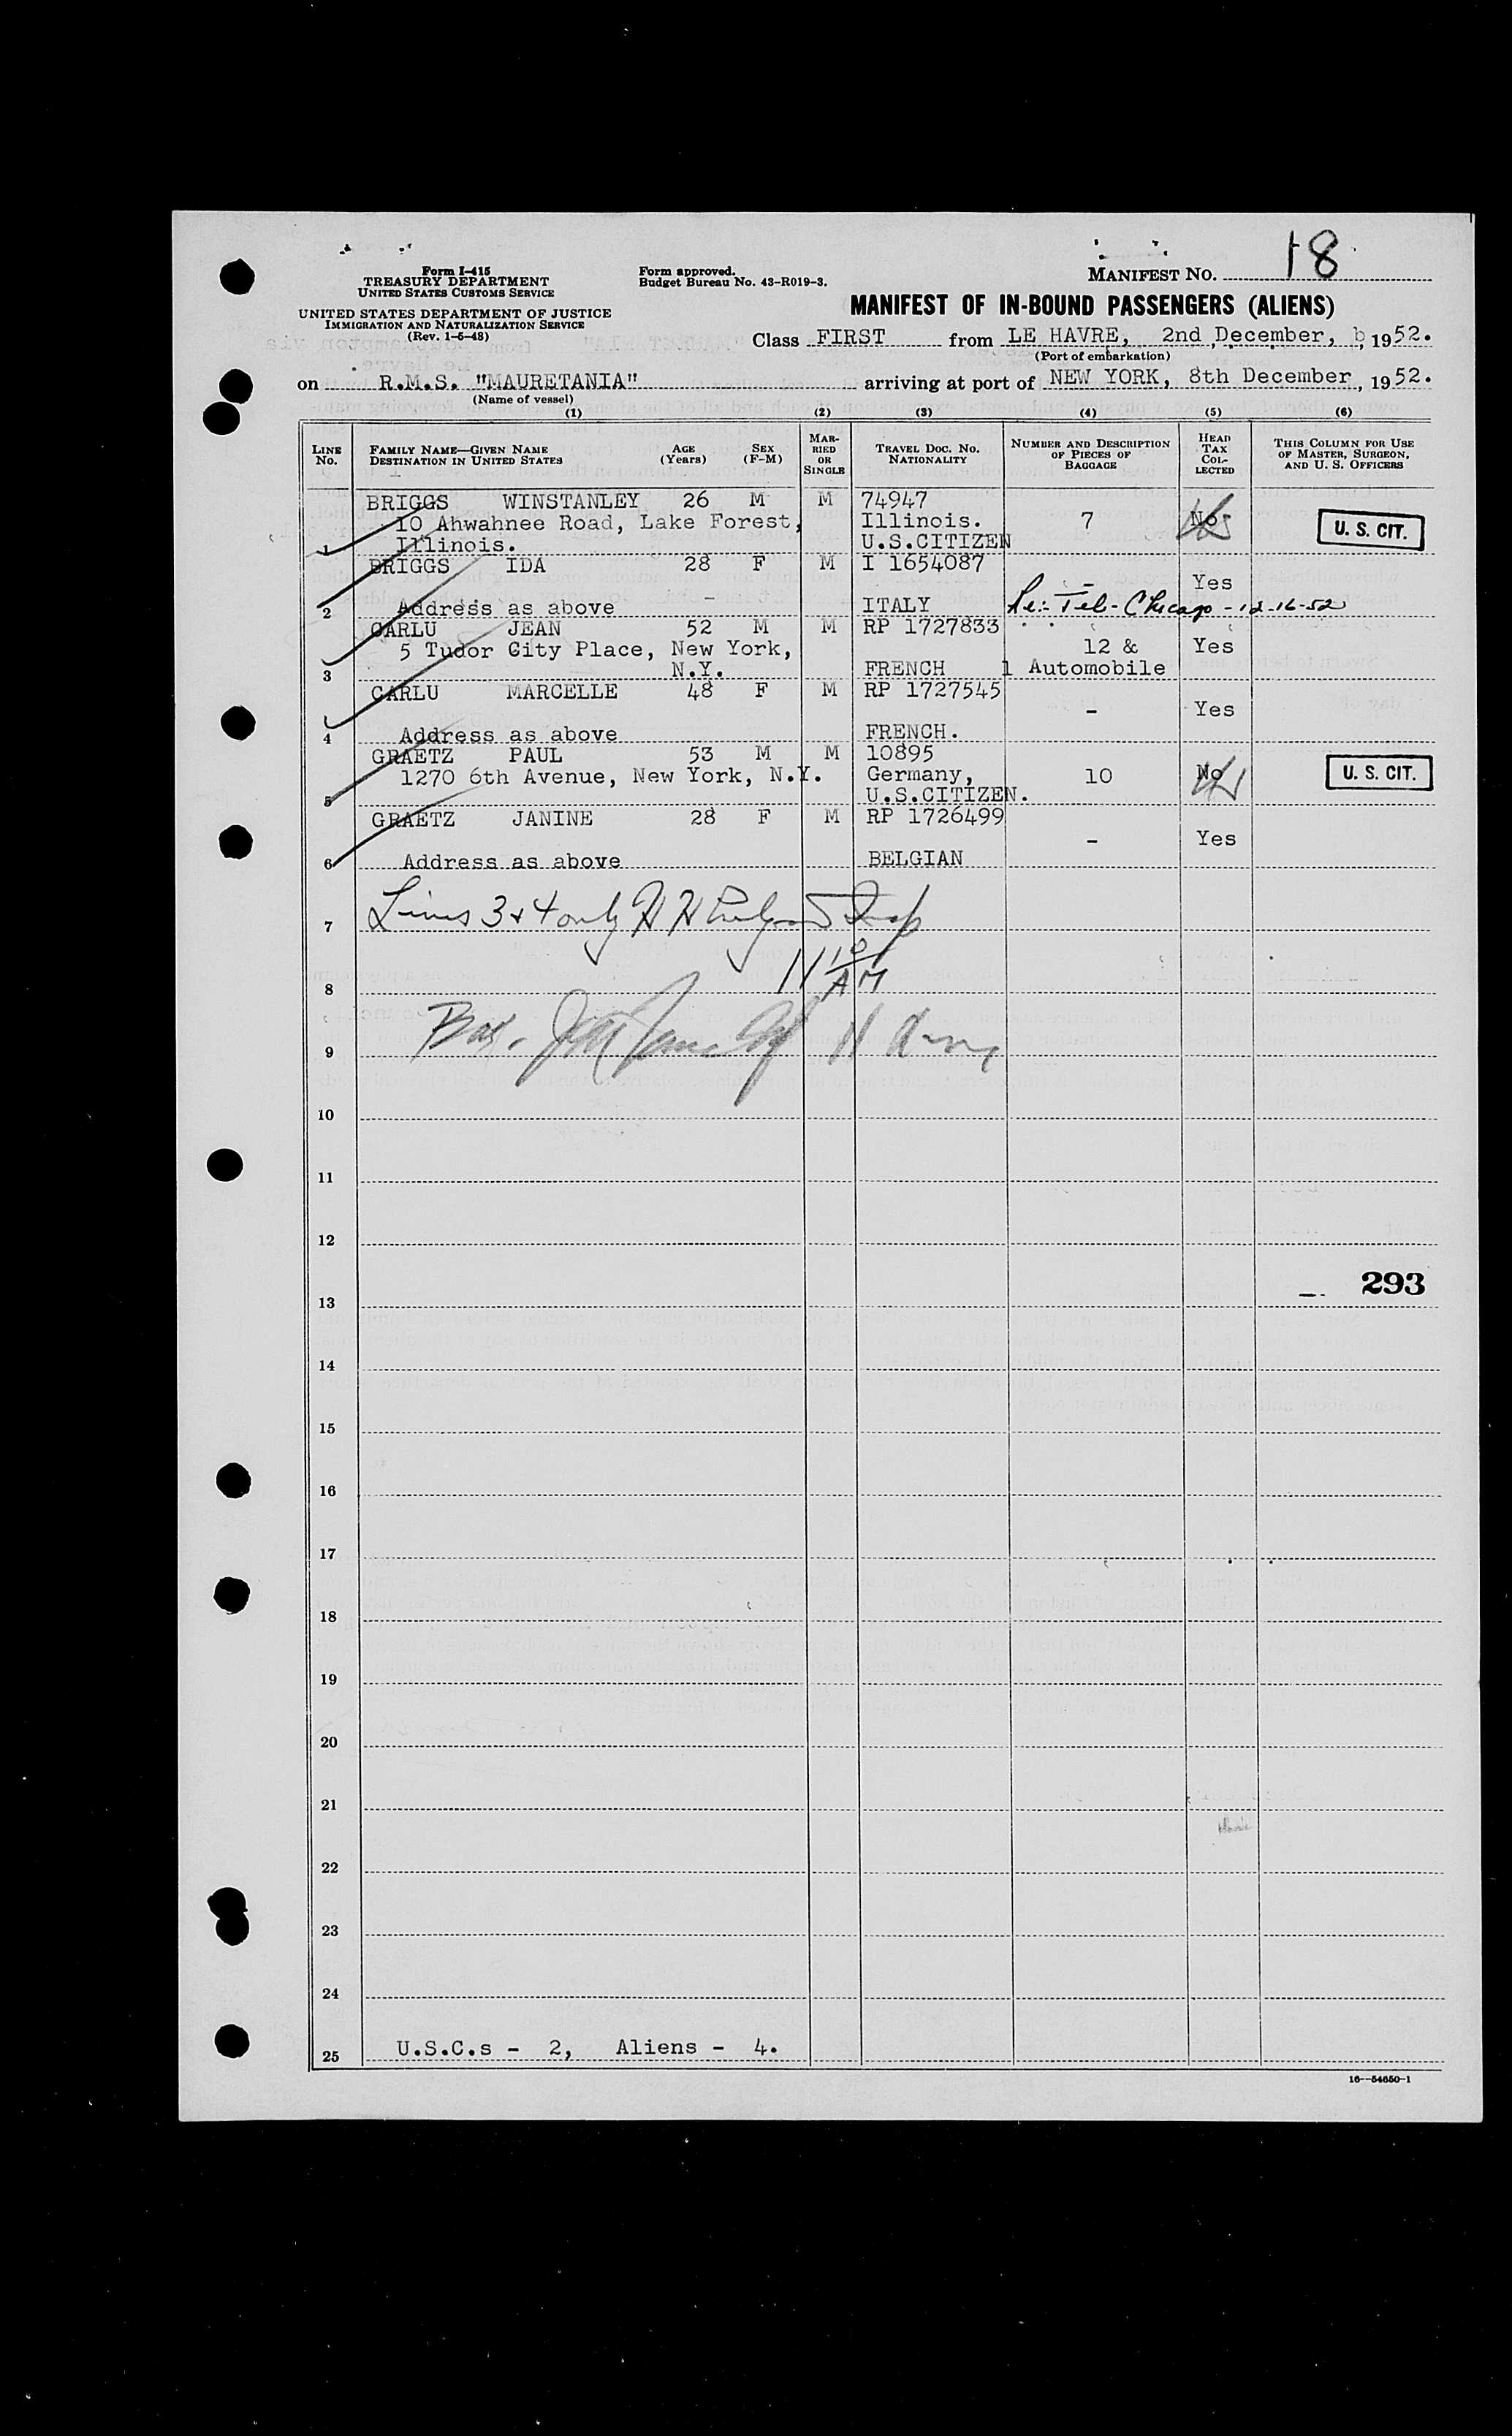 18
Form I-415
TREASURY DEPARTMENT
UNITED STATES CUSTOMS SERVICE
UNITED STATES DEPARTMENT OF JUSTICE
IMMIGRATION AND NATURALIZATION SERVICE
(Rev. 1-5-48)
Form approved.
Budget Bureau No. 43-R019-3.
MANIFEST NO.
MANIFEST OF IN-BOUND PASSENGERS (ALIENS)
Class FIRST from LE HAVRE, 2nd December, 1952.
(Port of embarkation)
on R.M.S. "MAURETANIA" arriving at port of NEW YORK, 8th December, 1952.
(Name of vessel)
(1) (2) (3) (4) (5) (6)
LINE NO. FAMILY NAME—GIVEN NAME DESTINATION IN UNITED STATES AGE (Years) SEX (F-M) MARRIED OR SINGLE TRAVEL DOC. NO. NATIONALITY NUMBER AND DESCRIPTION OF PIECES OF BAGGAGE HEAD TAX COLLECTED THIS COLUMN FOR USE OF MASTER, SURGEON, AND U. S. OFFICERS
BRIGGS WINSTANLEY 26 M M 74947
10 Ahwahnee Road, Lake Forest, Illinois. 7 No U. S. CIT.
1 Illinois. U.S.CITIZEN
BRIGGS IDA 28 F M I 1654087
- Yes
2 Address as above ITALY Tel-Chicago-12-16-52
CARLU JEAN 52 M M RP 1727833
5 Tudor City Place, New York, 12 & Yes
3 N.Y. FRENCH 1 Automobile
CARLU MARCELLE 48 F M RP 1727545
- Yes
4 Address as above FRENCH.
GRAETZ PAUL 53 M M 10895
1270 6th Avenue, New York, N.Y. Germany, 10 No U. S. CIT.
5 U.S.CITIZEN.
GRAETZ JANINE 28 F M RP 1726499
- Yes
6 Address as above BELGIAN
7 Lines 3 & 4 only
8 11 10 AM
9
10
11
12
293
13
14
15
16
17
18
19
20
21
22
23
24
25 U.S.C.s - 2, Aliens - 4.
16—54650-1